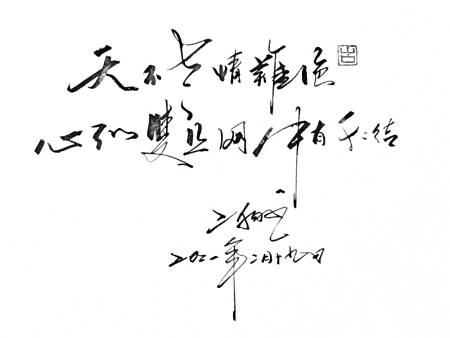 天不老情難絕
心似雙絲网中有千千結
二〇二一年二月十九日